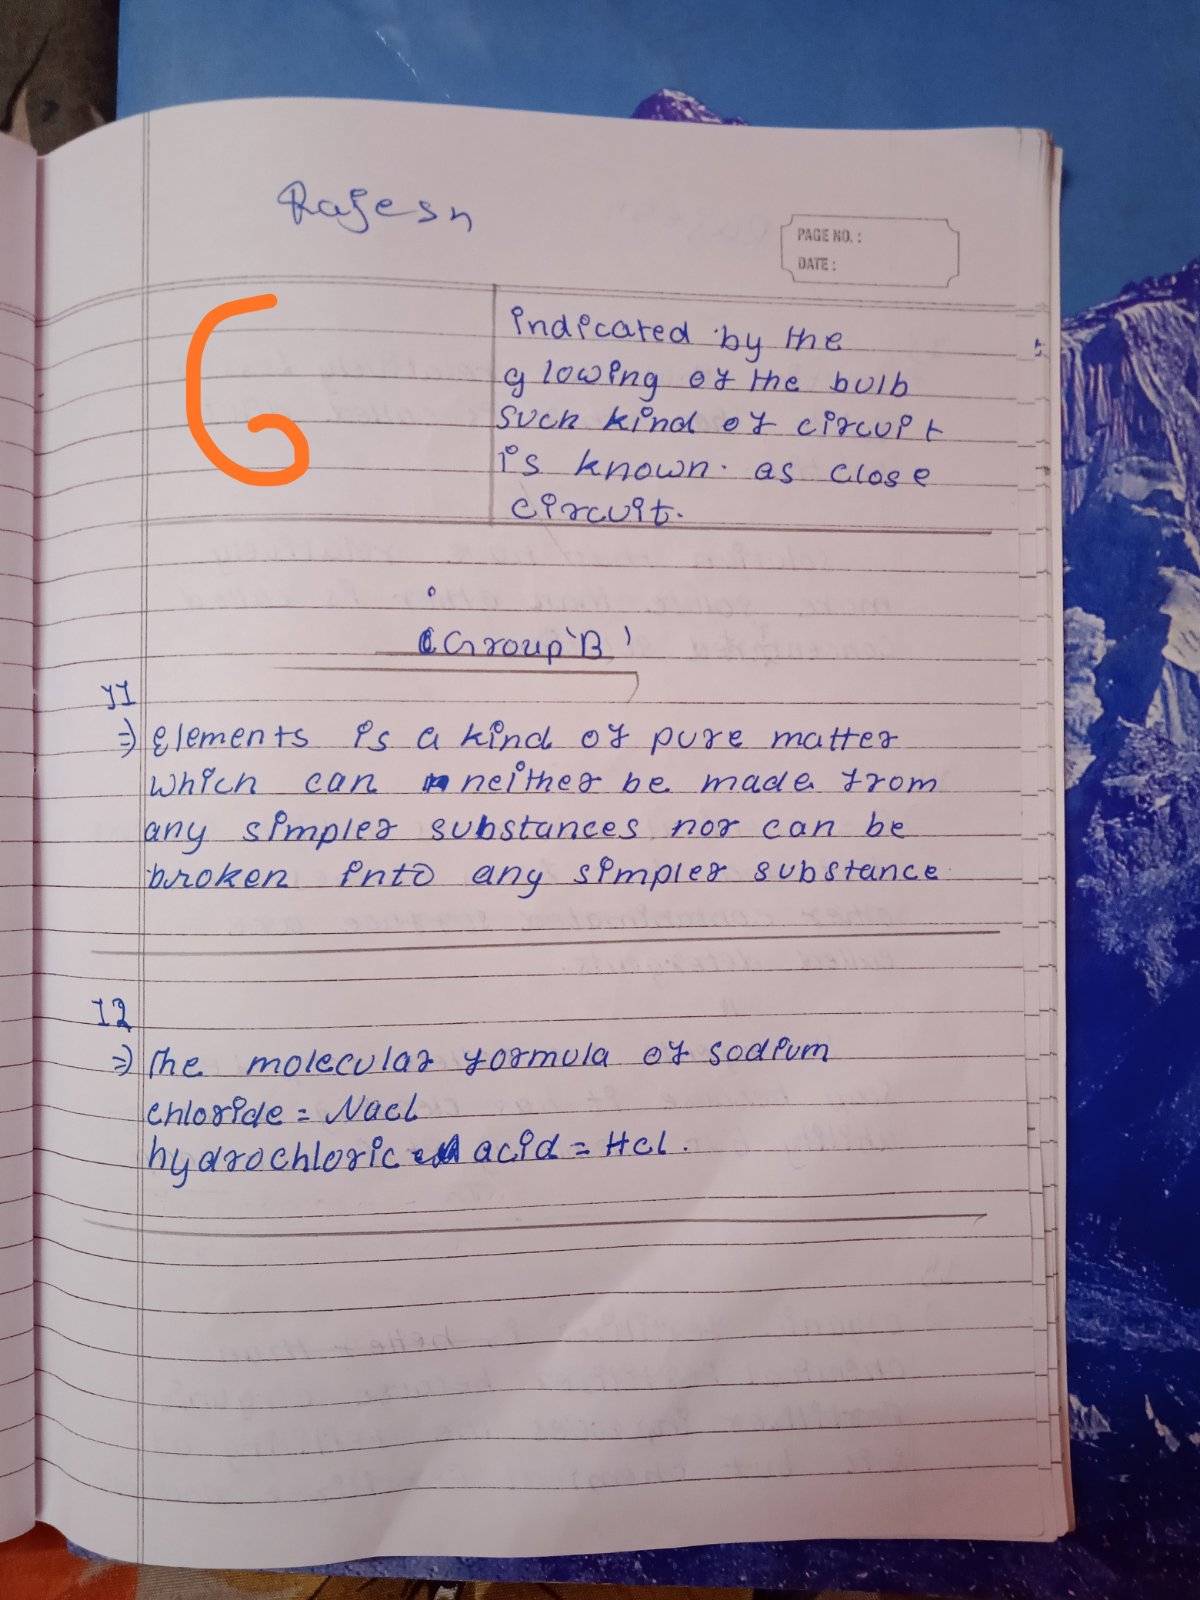 Rajesh
PAGE NO. :
DATE :
6
indicated by the
glowing of the bulb
such kind of circuit
is known. as close
circuit.
Group 'B'
11
⇒ Elements is a kind of pure matter
which can neither be made from
any simpler substances nor can be
broken into any simpler substance
12
⇒ The molecular formula of sodium
chloride = Nacl
hydrochloric acid = Hcl.